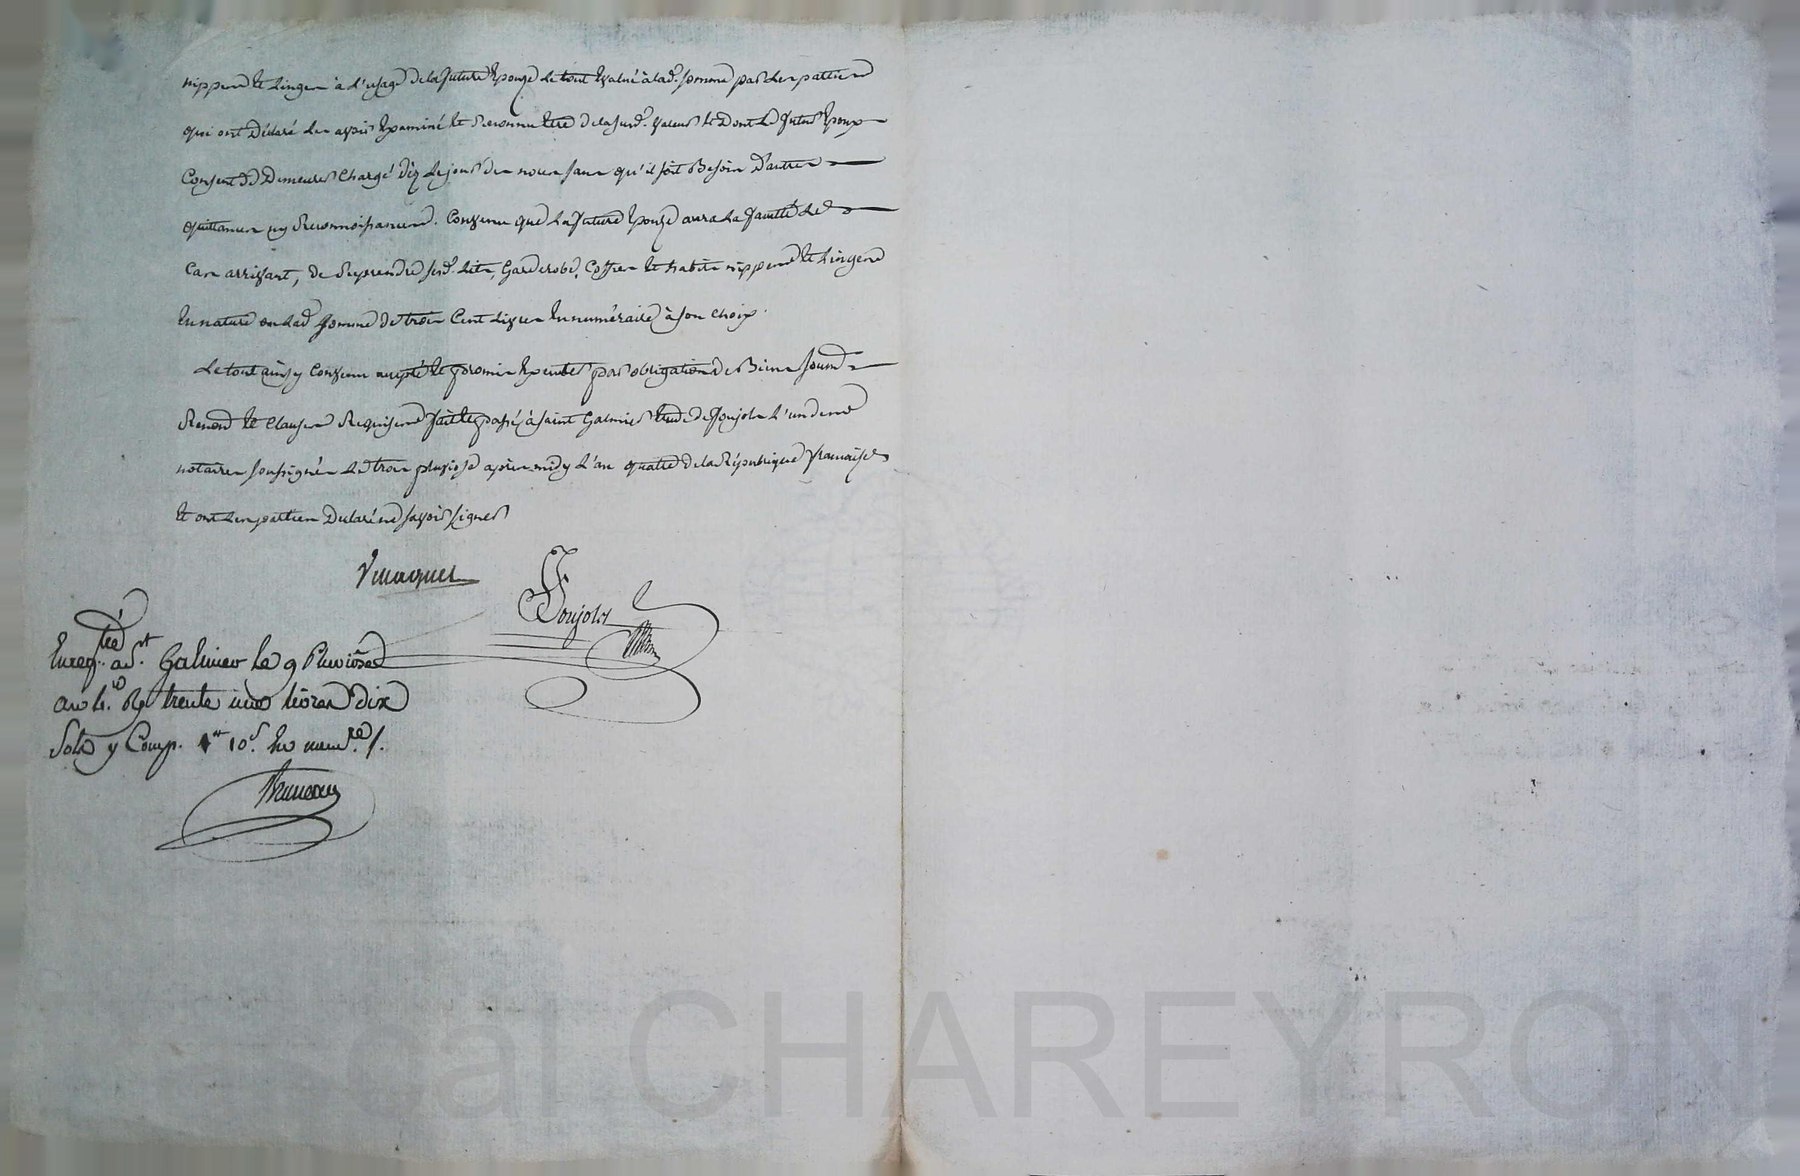 nippes et linges à l'usage de la future Epouze le tout Evalué à lad. somme par les parties
qui ont Déclaré les avoir Examiné et Reconnu être de lasusd. valeur et Dont le futur Epoux
Consent De Demeurer Chargé Dez le jour des noces sans qu'il soit Besoin D'autres
quittances ny Reconnoissances. Convenu que la future Epouze aura la faculté le
Cas arrivant, de Reprendre sesd. lits, Garderobe, Coffres et habits nippes et linges
En nature ou lad. somme de trois Cent livres En numéraire à son choix.
Le tout ainsy Convenu accepté et promis Exécuter par obligation de Biens soumis
Renon. et Clauses Requises fait et passé à Saint Galmier Etude de Poujols l'un des
notaires soussignés Le trois pluviose après midy l'an quatre de la République francaise
Et ont les parties Declaré ne savoir signer
Poujols
Enreg.tré a St. Galmier le 9 Pluviôse
an 4. Rç trente livres dix
Sols y Comp. 10s. En num.re /.
cal CHAREYRON